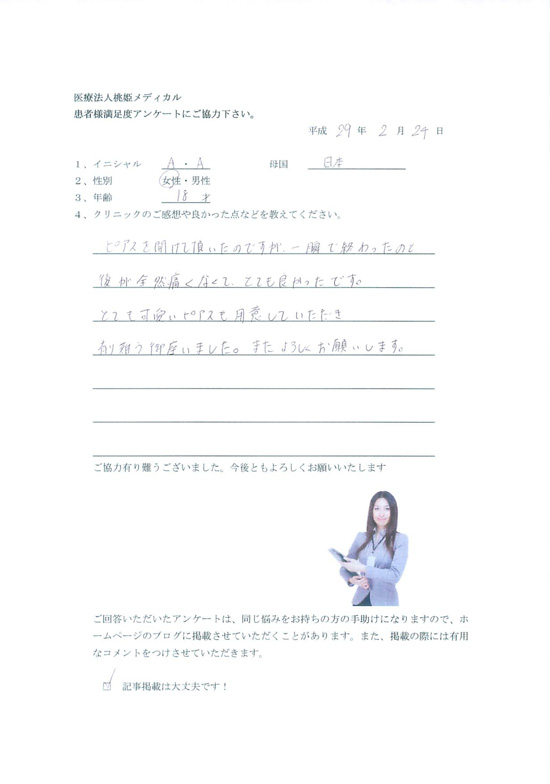 医療法人桃姫メディカル
患者様満足度アンケートにご協力下さい。
平成 29 年 2 月 24 日
1，イニシャル A・A 母国 日本
2，性別 女性・男性
3，年齢 18 才
4，クリニックのご感想や良かった点などを教えてください。
ピアスを開けて頂いたのですが、一瞬で終わったのと
後が全然痛くなくて、とても良かったです。
とても可愛いピアスも用意していただき
有難う御座いました。またよろしくお願いします。
ご協力有り難うございました。今後ともよろしくお願いいたします
ご回答いただいたアンケートは、同じ悩みをお持ちの方の手助けになりますので、ホ
ームページのブログに掲載させていただくことがあります。また、掲載の際には有用
なコメントをつけさせていただきます。
☑ 記事掲載は大丈夫です！